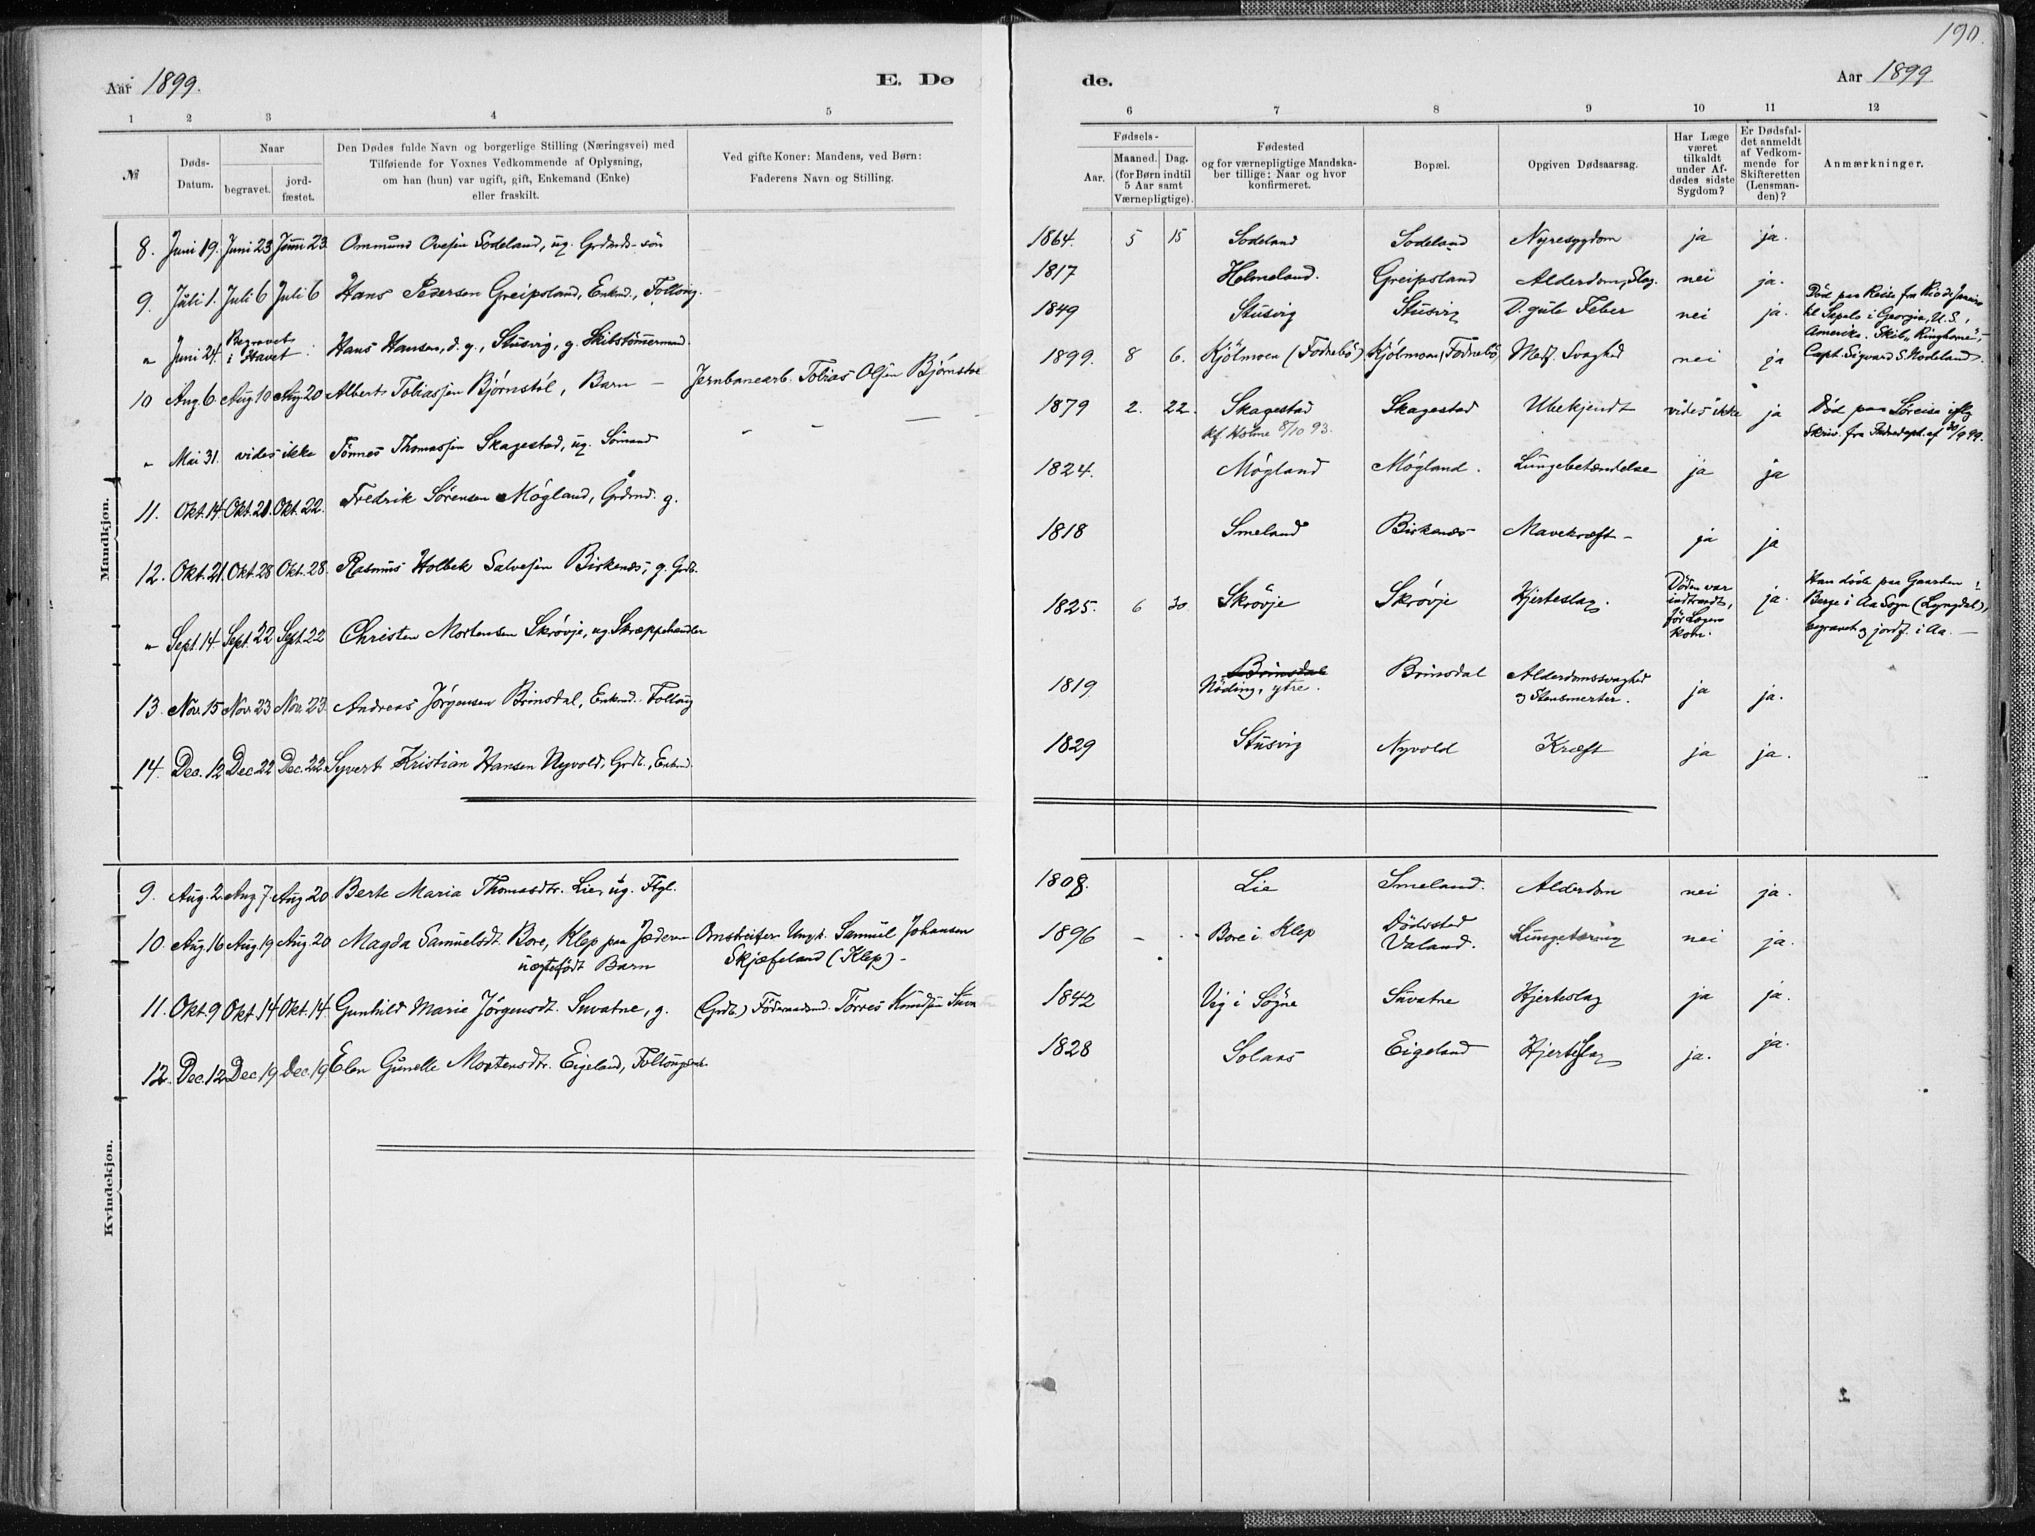 190.
Aar 1899.
E. Dø
de.
Aar 1899
1 2 3 4 5
6 7 8 9 10 11 12
№
Døds-
Datum.
Naar
begravet.
jord-
fæstet.
Den Dødes fulde Navn og borgerlige Stilling (Næringsvei) med
Tilføiende for Voxnes Vedkommende af Oplysning,
om han (hun) var ugift, gift, Enkemand (Enke)
eller fraskilt.
Ved gifte Koner: Mandens, ved Børn:
Faderens Navn og Stilling.
Fødsels-
Aar.
Maaned. Dag.
(for Børn indtil
5 Aar samt
Værnepligtige).
Fødested
og for værnepligtige Mandska-
ber tillige: Naar og hvor
konfirmeret.
Bopæl.
Opgiven Dødsaarsag.
Har Læge
været
tilkaldt
under Af-
dødes sidste
Sygdom?
Er Dødsfal-
det anmeldt
af Vedkom-
mende for
Skifteretten
(Lensman-
den)?
Anmærkninger.
Mandkjøn.
8. Juni 19. Juni 23 Juni 23. Ommund Ovesen Sodeland, ug. Grdmds-søn
1864. 5 15 Sodeland Sodeland Nyresygdom ja ja.
9. Juli 1. Juli 6 Juli 6 Hans Pedersen Greipsland, Enkmd., Foltrug.
1817 Helmeland. Greipsland Alderdom, Slag. nei ja.
" Juni 24. Begravet i Havet. Hans Hansen, d. y., Stusvig, g. Skibstømmermand
1849 Stusvig Stusvig D. gule Feber nei ja.
Død paa Reise fra Rio de Janeiro
til Sapelo i Georgia, U. S.,
Amerika. Skib „Ringhorne",
Capt. Sigvard S. Hodeland.
10 Aug. 6. Aug 10 Aug. 20 Albert Tobiassen Bjørnstøl, Barn — Jernbanearb. Tobias Olsen Bjørnstøl
1899. 8 6. Kjølmoen (Fodnebø) Kjølmoen, Fodnebø, Medf. Svaghed nei ja
" Mai 31. vides ikke Tønnes Thomassen Skagestad, ug. Sømand
1879 2. 22. Skagestad Skagestad Ubekjendt vides ikke ja
kf. Holme 8/10 93.
Død paa Søreise iflg.
Skriv. fra af 30/9 99.
11. Okt. 14 Okt. 21. Okt. 22. Fredrik Sørensen Møgland, Grdmd. g.
1824. Møgland Møgland. Lungebetændelse ja ja
12. Okt. 21. Okt. 28 Okt. 28. Rasmus Holbek Salvesen Birkenes, g. Grdb.
1818 Smeland Birkenes Mavekræft — ja ja
" Sept. 14. Sept. 22 Sept. 22 Christen Mortensen Skrøvje, ug. Skræppehandler
1825. 6 30 Skrøvje Skrøvje Hjerteslag.
Døden var
indtraadt,
før Lægen
kom.
ja.
Han døde paa Gaarden
Berge i Aa Sogn (Lyngdal),
begravet og jordf. i Aa. —
13. Nov. 15 Nov. 23 Nov. 23. Andreas Jørgensen Brinsdal, Enkmd. Foltrug
1819. Brinsdal Brinsdal Alderdomssvaghed ja ja.
Nøding, ytre.
og Stensmerter.
14. Dec. 12 Dec 22 Dec. 22 Syvert Kristian Hansen Nyvold, Grdb., Enkmd.
1829 Stusvig Nyvold Kræft ja ja.
Kvindekjøn.
9. Aug. 2. Aug. 7. Aug 20 Berte Maria Thomasdtr. Lie, ug. Ftgl.
1808. Lie Smeland. Alderdom nei ja.
10. Aug. 16 Aug. 19 Aug. 20 Magda Samuelsdt. Bore, Klep paa Jæderen
uægtefødt Barn
Omstreifer Ungk. Samuel Johansen
Skjæfeland (Klep) —
1896 - - Bore i Klep
Dødssted
Valand.
Lungetæring nei ja.
11. Okt. 9 Okt. 14 Okt. 14. Gunhild Marie Jørgensdt. Suvatne, g. (Grdb.) Føderaadsmd. Tørres Knudsen
1842 Vig i Søgne Suvatne Hjerteslag ja ja.
12. Dec. 12 Dec. 19 Dec. 19 Elen Gunelle Mortensdtr. Eigeland,
1828 Solaas Eigeland Hjerteslag ja. ja.